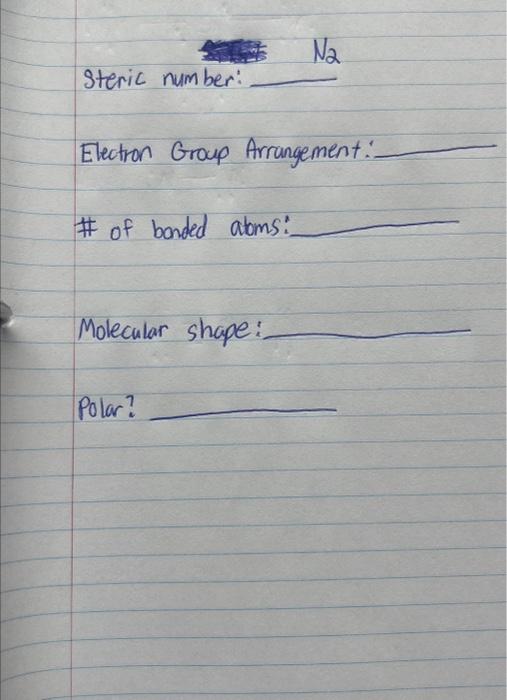 N2
Steric number:
Electron Group Arrangement:
# of bonded atoms:
Molecular shape:
Polar?